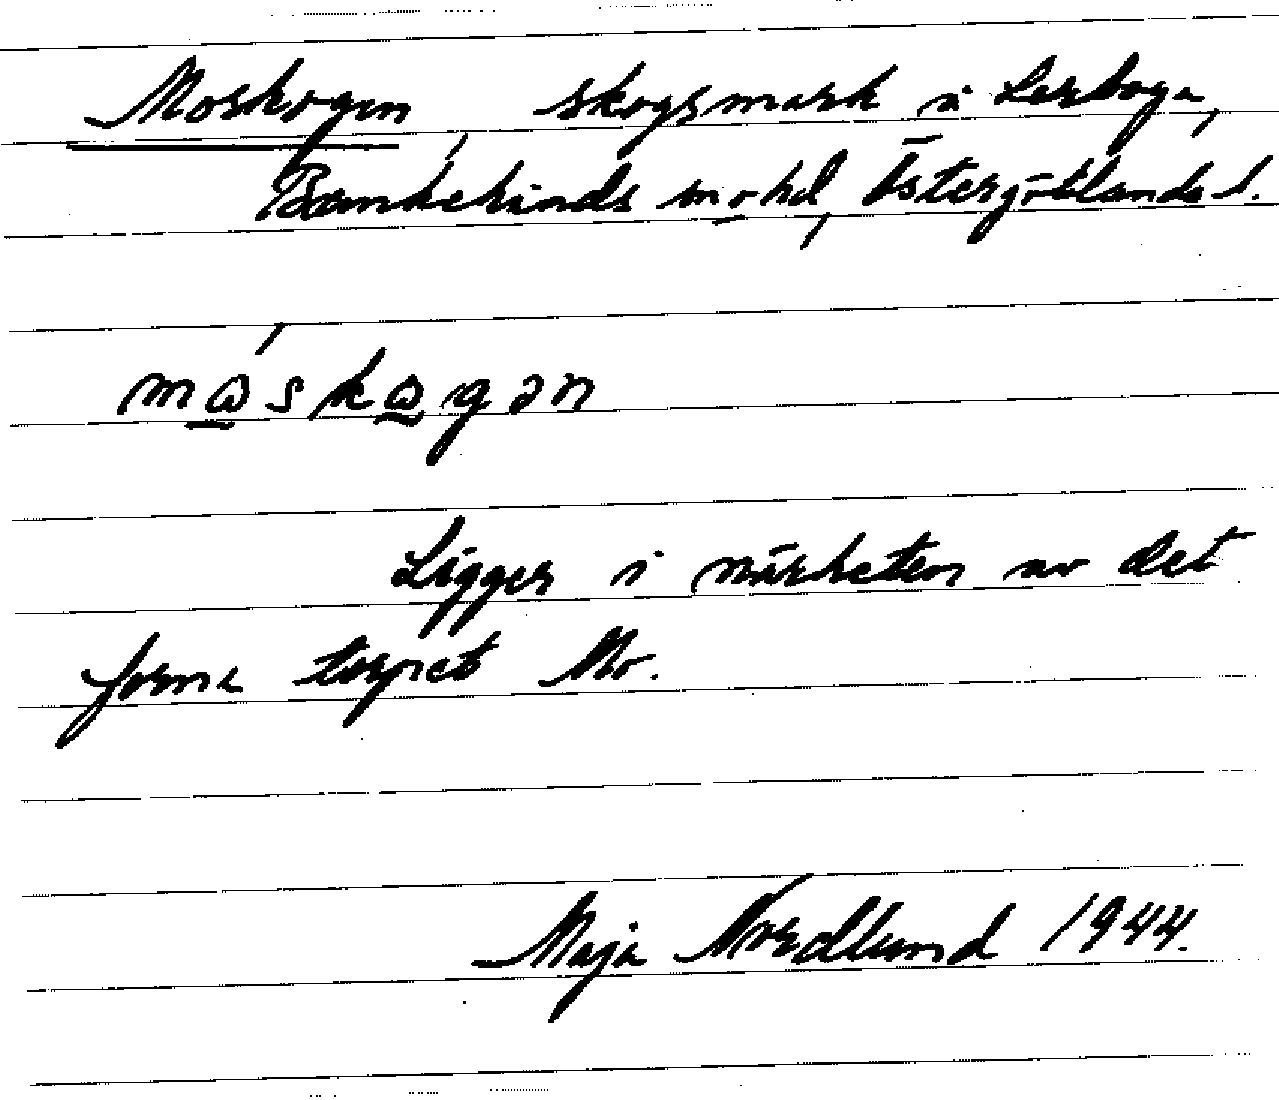 Moskogen, skogsmark i Lerboga,
Bankekinds sn o hd, Östergötlands l.
Ligger i närheten av det
forna torpet Mo.
Maja Nordlund 1944.